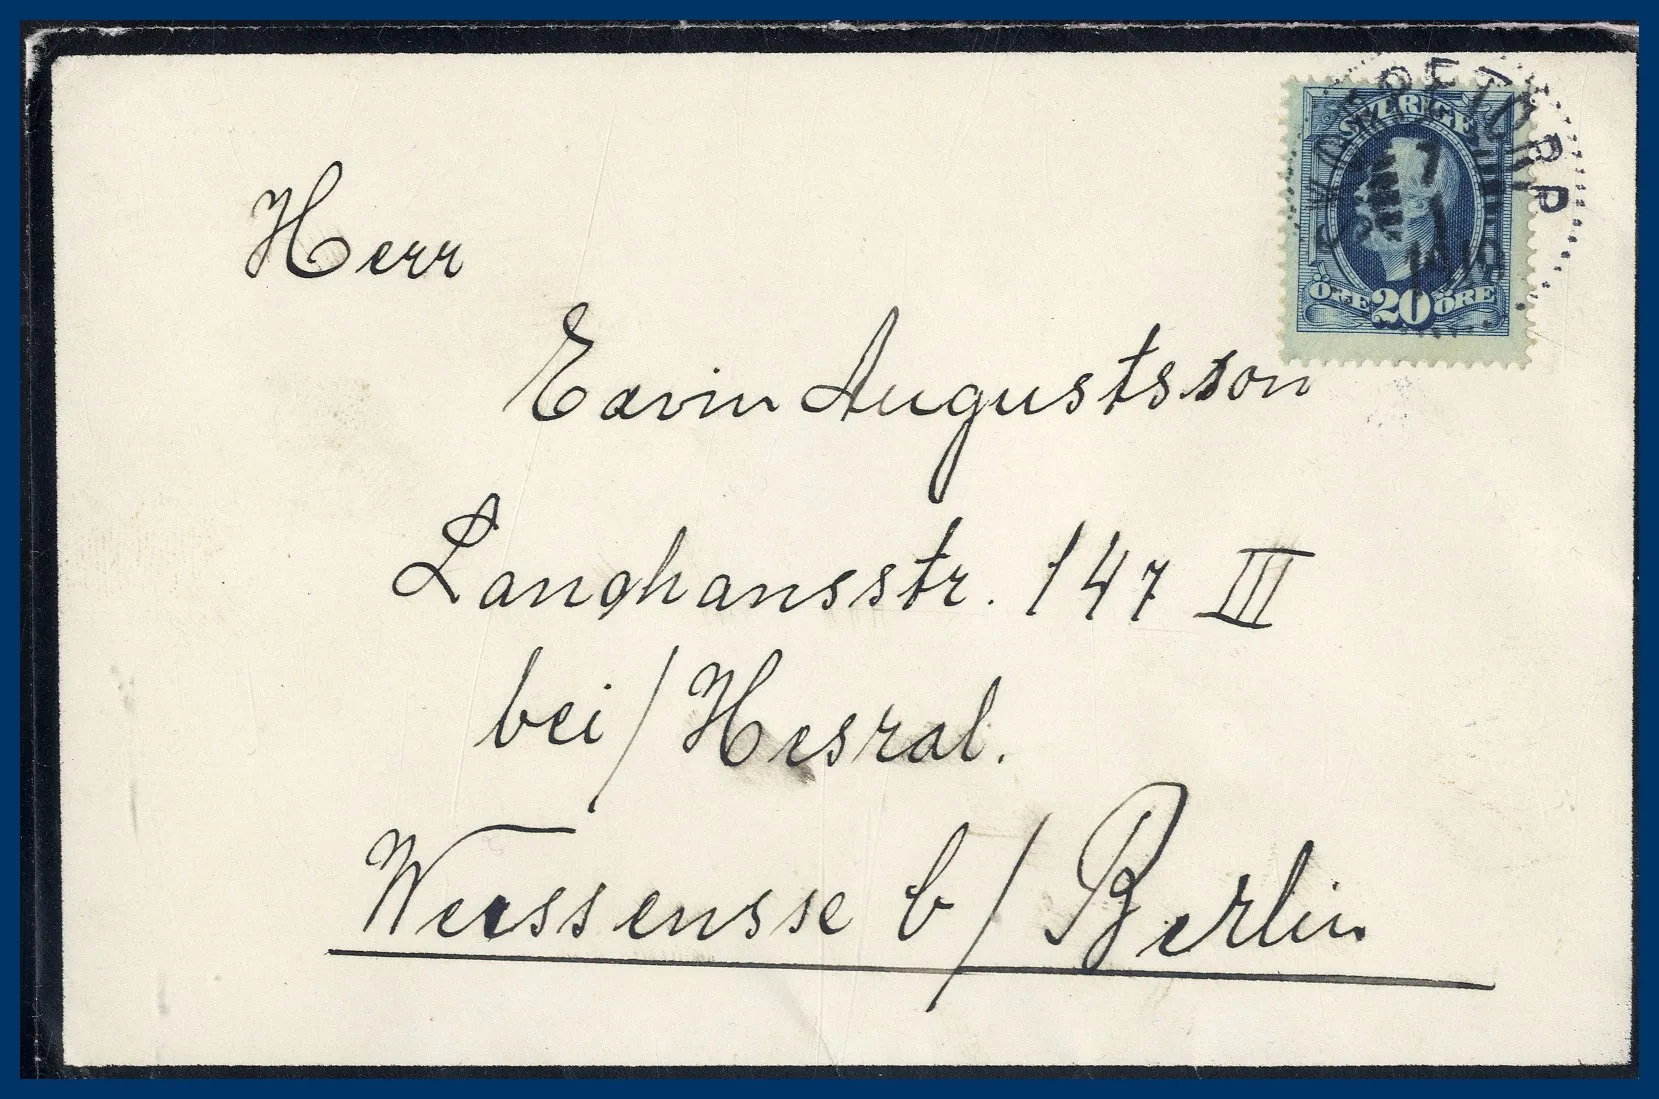 SVERIGE
7
1
1910
ÖRE 20 ÖRE
Herr
Edvin Augustsson
Langhansstr. 147 III
bei / Hesral.
Weissensse b / Berlin